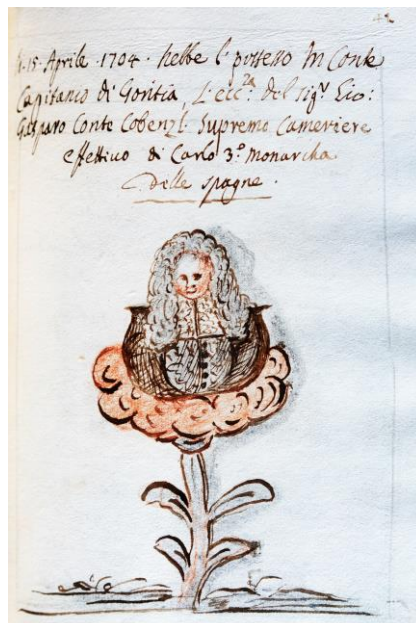 42
A. 15. Aprile. 1704. hebbe l'possesso in Conte
Capitanio di Goritia, L'ecc.za del Sig.r Gio:
Gasparo Conte Cobenzl. Supremo Cameriere
effettivo di Carlo 3.o Monarcha
delle spagne.